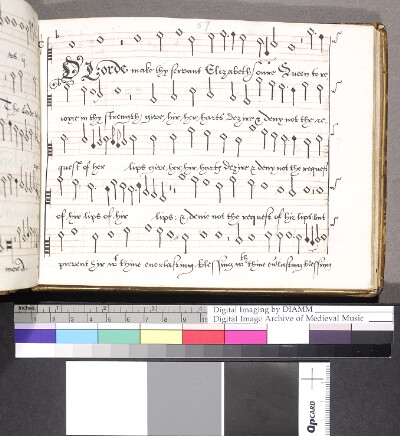 57
O Lorde make thy servant Elizabeth oure Queen to re
ioyce in thy strength, geve hir, her harts dezire & deny not the re
quest of her lips geve her, hir harts dezire & deny not the request
of hir lips of hir lips: & denie not the request of hir lips but
prevent hir wt thine everlasting blessing wth thine everlasting blessing
inches
Digital Imaging by DIAMM
Digital Image Archive of Medieval Music
QPCARD